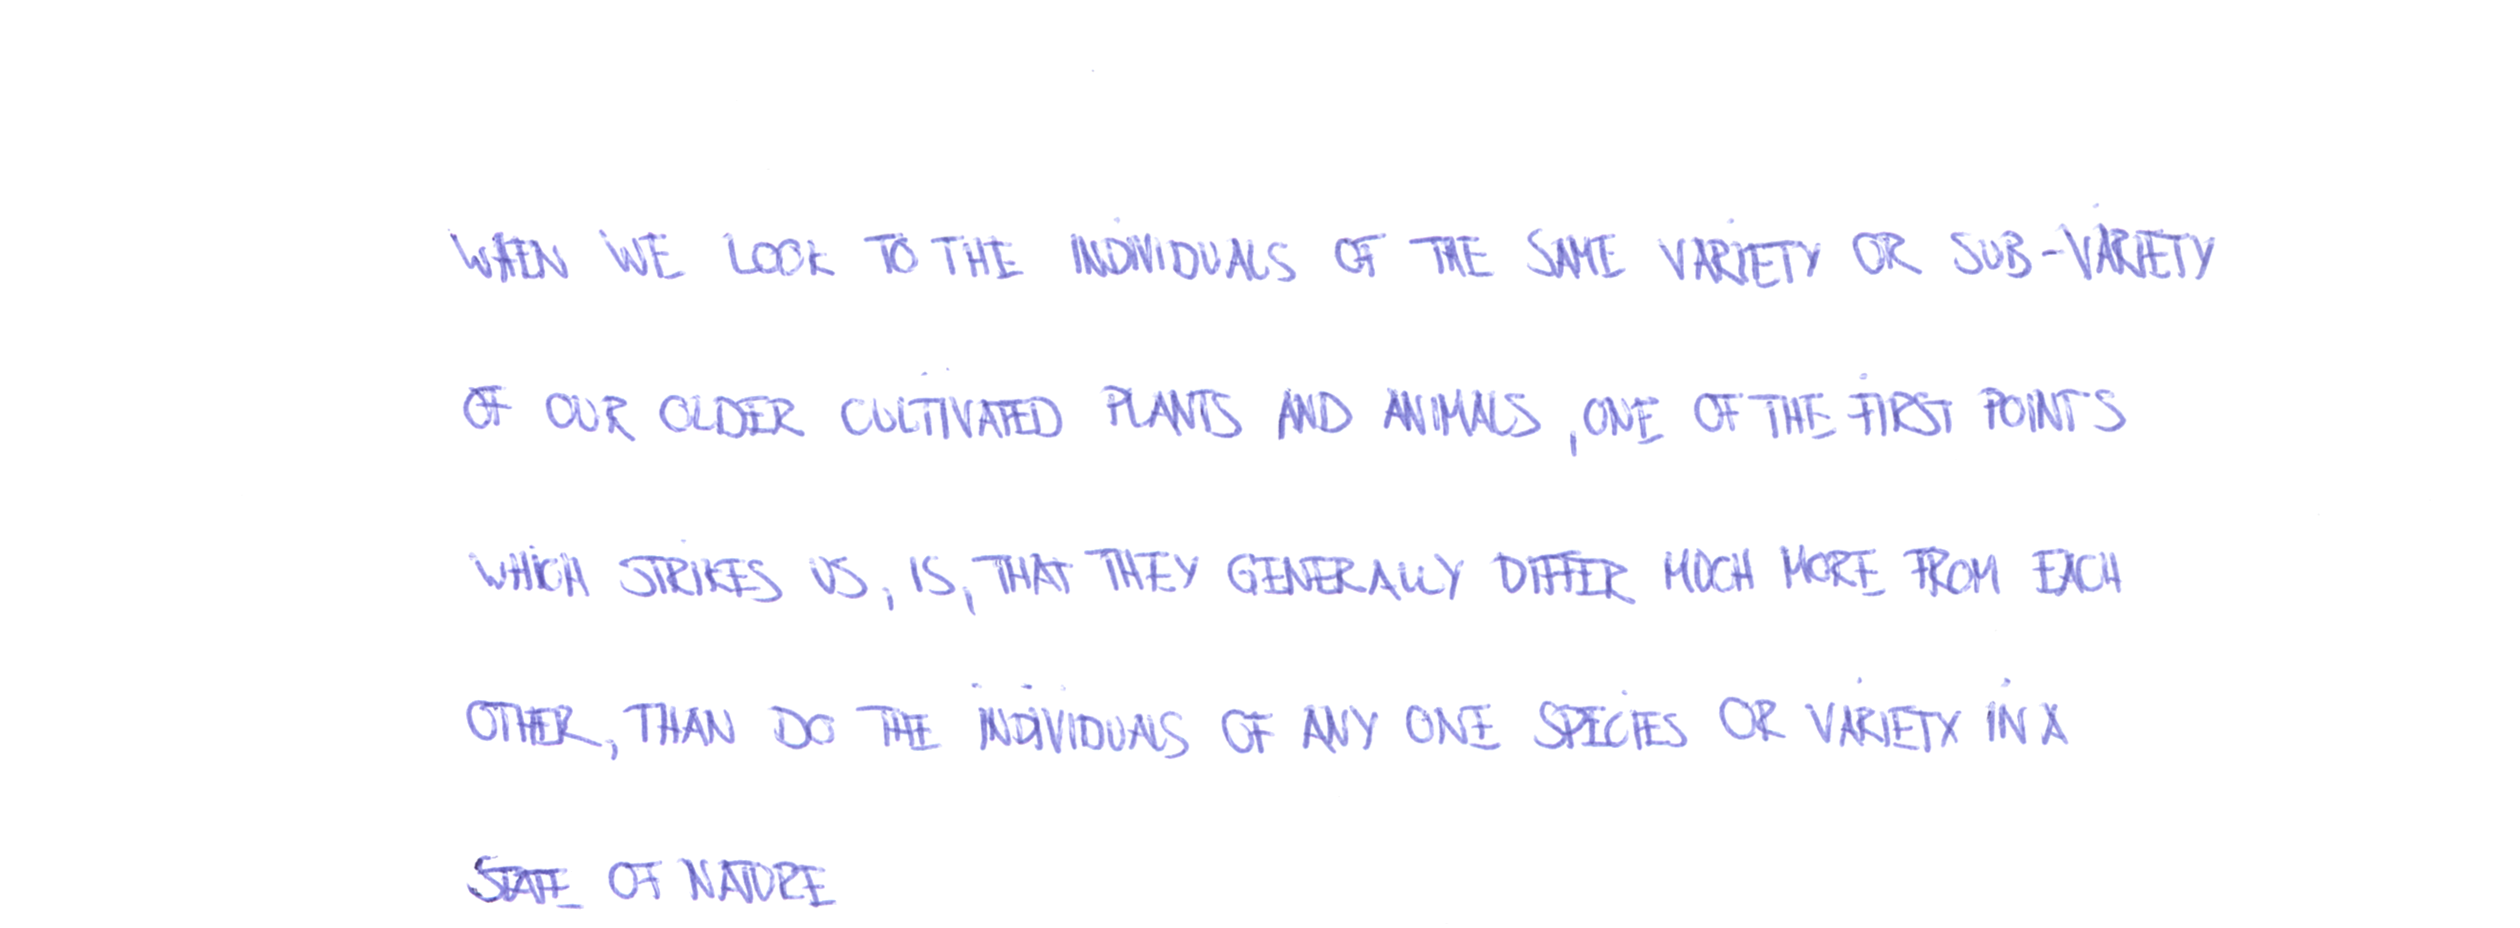 WHEN WE LOOK TO THE INDIVIDUALS OF THE SAME VARIETY OR SUB-VARIETY
OF OUR OLDER CULTIVATED PLANTS AND ANIMALS, ONE OF THE FIRST POINTS
WHICH STRIKES US, IS, THAT THEY GENERALLY DIFFER MUCH MORE FROM EACH
OTHER, THAN DO THE INDIVIDUALS OF ANY ONE SPECIES OR VARIETY IN A
STATE OF NATURE